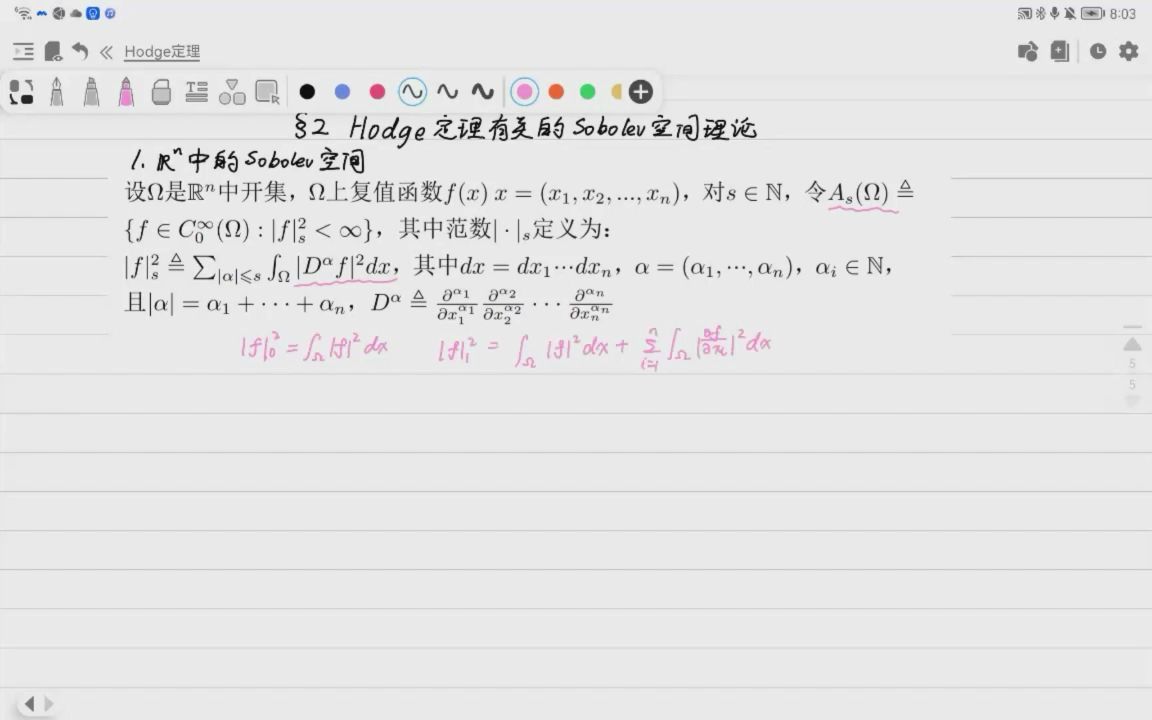 8:03
Hodge定理
§2 Hodge定理有关的Sobolev空间理论
1. ℝⁿ中的Sobolev空间
设Ω是ℝⁿ中开集，Ω上复值函数f(x) x = (x₁, x₂, ..., xₙ)，对s ∈ ℕ，令Aₛ(Ω) ≜
{f ∈ C₀^∞(Ω) : |f|ₛ² < ∞}，其中范数| · |ₛ定义为：
|f|ₛ² ≜ ∑_{|α|⩽s} ∫_Ω |D^α f|² dx，其中dx = dx₁⋯dxₙ，α = (α₁, ⋯, αₙ)，αᵢ ∈ ℕ，
且|α| = α₁ + ⋯ + αₙ，D^α ≜ ∂^{α₁}/∂x₁^{α₁} ∂^{α₂}/∂x₂^{α₂} ⋯ ∂^{αₙ}/∂xₙ^{αₙ}
|f|₀² = ∫_Ω |f|² dx |f|₁² = ∫_Ω |f|² dx + ∑_{i=1}^n ∫_Ω |∂f/∂xᵢ|² dx
5
5